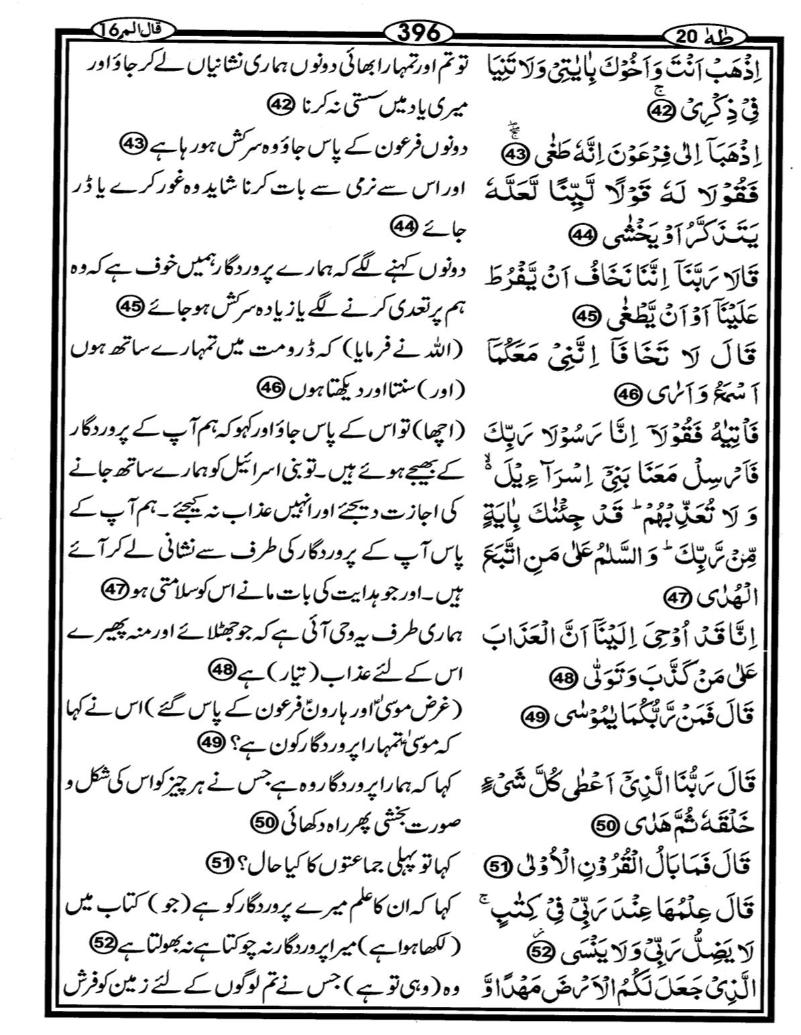 طٰهٰ 20
396
قال الم 16
اِذْهَبْ اَنْتَ وَ اَخُوْكَ بِاٰيٰتِيْ وَ لَا تَنِيَا
فِيْ ذِكْرِيْ ۚ 42
اِذْهَبَاۤ اِلٰى فِرْعَوْنَ اِنَّهٗ طَغٰى ۚۖ 43
فَقُوْلَا لَهٗ قَوْلًا لَّيِّنًا لَّعَلَّهٗ
يَتَذَكَّرُ اَوْ يَخْشٰى 44
قَالَا رَبَّنَاۤ اِنَّنَا نَخَافُ اَنْ يَّفْرُطَ
عَلَيْنَاۤ اَوْ اَنْ يَّطْغٰى 45
قَالَ لَا تَخَافَاۤ اِنَّنِيْ مَعَكُمَاۤ
اَسْمَعُ وَ اَرٰى 46
فَاْتِيٰهُ فَقُوْلَاۤ اِنَّا رَسُوْلَا رَبِّكَ
فَاَرْسِلْ مَعَنَا بَنِيْۤ اِسْرَآءِيْلَ ۙ۬
وَ لَا تُعَذِّبْهُمْ ؕ قَدْ جِئْنٰكَ بِاٰيَةٍ
مِّنْ رَّبِّكَ ؕ وَ السَّلٰمُ عَلٰى مَنِ اتَّبَعَ
الْهُدٰى 47
اِنَّا قَدْ اُوْحِيَ اِلَيْنَاۤ اَنَّ الْعَذَابَ
عَلٰى مَنْ كَذَّبَ وَ تَوَلّٰى 48
قَالَ فَمَنْ رَّبُّكُمَا يٰمُوْسٰى 49
قَالَ رَبُّنَا الَّذِيْۤ اَعْطٰى كُلَّ شَيْءٍ
خَلْقَهٗ ثُمَّ هَدٰى 50
قَالَ فَمَا بَالُ الْقُرُوْنِ الْاُوْلٰى 51
قَالَ عِلْمُهَا عِنْدَ رَبِّيْ فِيْ كِتٰبٍ ۚ
لَا يَضِلُّ رَبِّيْ وَ لَا يَنْسَى 52
الَّذِيْ جَعَلَ لَكُمُ الْاَرْضَ مَهْدًا وَّ
تو تم اور تمہارا بھائی دونوں ہماری نشانیاں لے کر جاؤ اور
میری یاد میں سستی نہ کرنا 42
دونوں فرعون کے پاس جاؤ وہ سرکش ہو رہا ہے 43
اور اس سے نرمی سے بات کرنا شاید وہ غور کرے یا ڈر
جائے 44
دونوں کہنے لگے کہ ہمارے پروردگار ہمیں خوف ہے کہ وہ
ہم پر تعدی کرنے لگے یا زیادہ سرکش ہو جائے 45
(اللہ نے فرمایا) کہ ڈرو مت میں تمہارے ساتھ ہوں
(اور) سنتا اور دیکھتا ہوں 46
(اچھا) تو اس کے پاس جاؤ اور کہو کہ ہم آپ کے پروردگار
کے بھیجے ہوئے ہیں۔ تو بنی اسرائیل کو ہمارے ساتھ جانے
کی اجازت دیجئے اور انہیں عذاب نہ کیجئے۔ ہم آپ کے
پاس آپ کے پروردگار کی طرف سے نشانی لے کر آئے
ہیں۔ اور جو ہدایت کی بات مانے اس کو سلامتی ہو 47
ہماری طرف یہ وحی آئی ہے کہ جو جھٹلائے اور منہ پھیرے
اس کے لئے عذاب (تیار) ہے 48
(غرض موسیٰؑ اور ہارونؑ فرعون کے پاس گئے) اس نے کہا
کہ موسیٰ تمہارا پروردگار کون ہے؟ 49
کہا کہ ہمارا پروردگار وہ ہے جس نے ہر چیز کو اس کی شکل و
صورت بخشی پھر راہ دکھائی 50
کہا تو پہلی جماعتوں کا کیا حال؟ 51
کہا کہ ان کا علم میرے پروردگار کو ہے (جو) کتاب میں
(لکھا ہوا ہے) میرا پروردگار نہ چوکتا ہے نہ بھولتا ہے 52
وہ (وہی تو ہے) جس نے تم لوگوں کے لئے زمین کو فرش